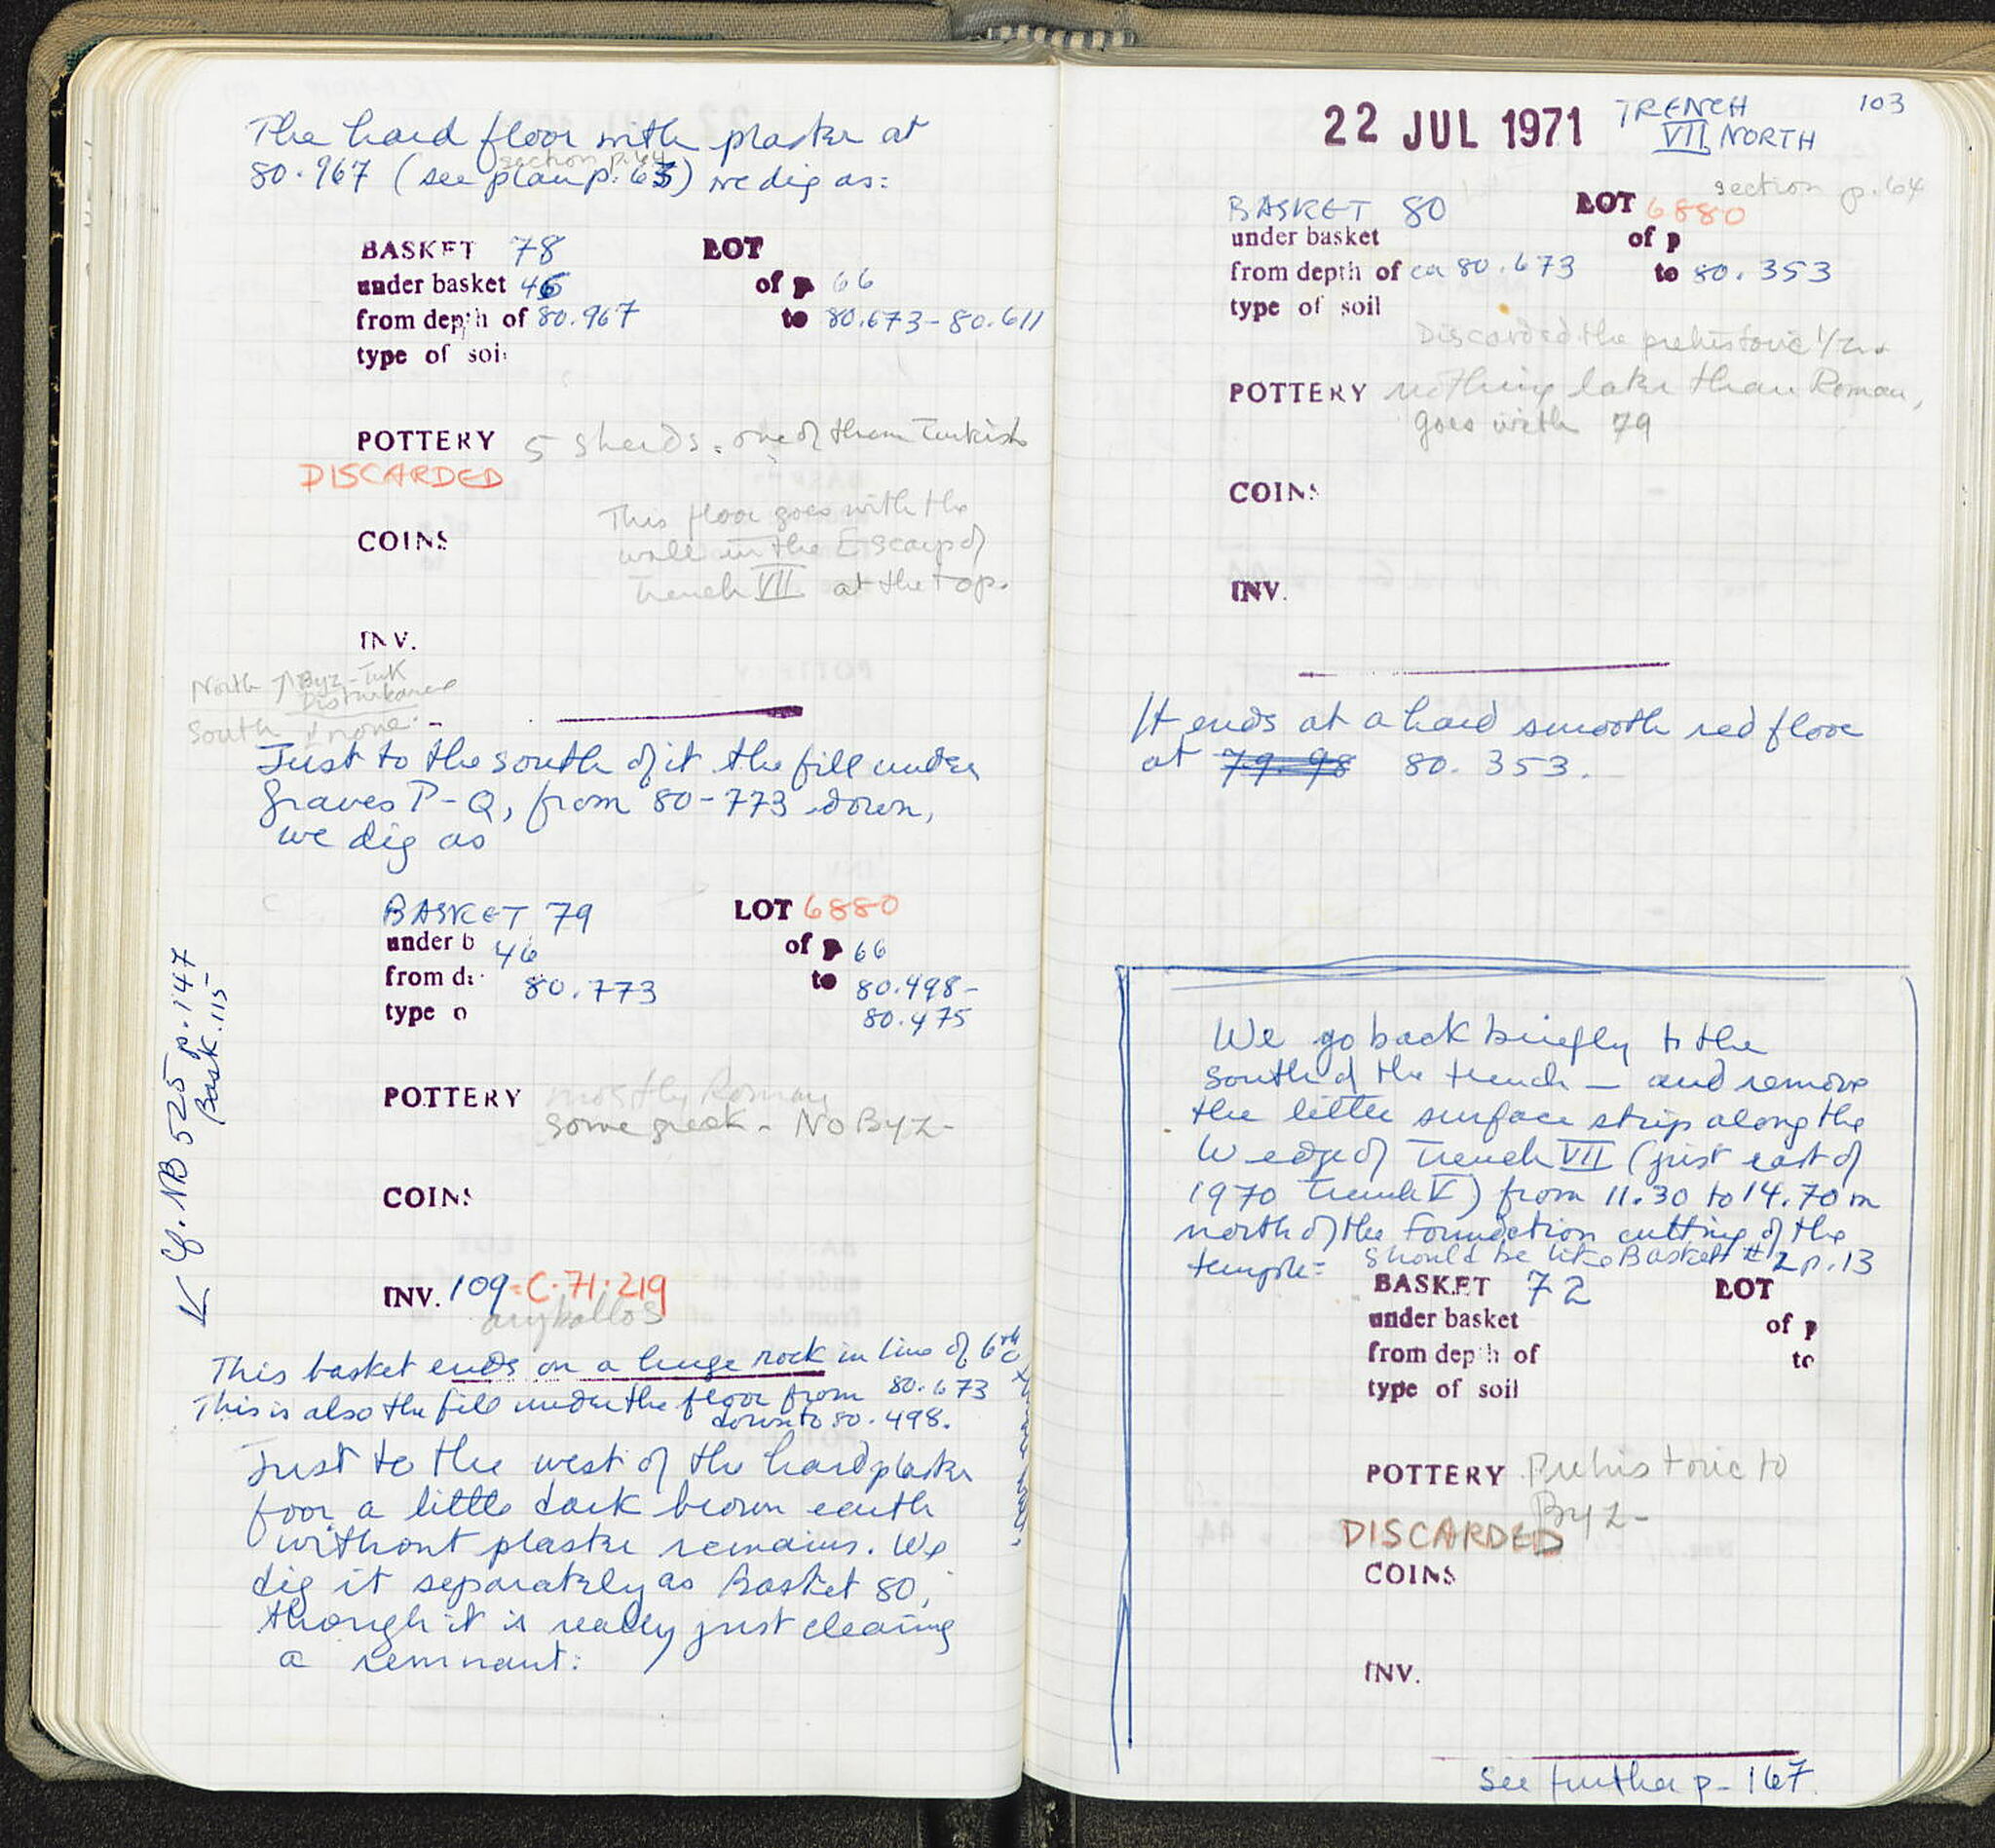 The hard floor with plaster at
section p. 64
80.967 (see plan p. 63) we dig as:
BASKET 78 LOT
under basket 46 of p 66
from depth of 80.967 to 80.673-80.611
type of soi
POTTERY 5 sherds. one of them Turkish
DISCARDED
This floor goes with the
COINS wall in the Escarp of
Trench VII at the top.
INV.
North ↑ Byz-Turk
Disturbance
South ↓ none.
Just to the south of it the fill under
graves P-Q, from 80-773 down,
we dig as
BASKET 79 LOT 6880
under b 46 of p 66
from d 80.773 to 80.498-
type o 80.475
POTTERY mostly Roman
some greek - No Byz-
COINS
INV. 109 = C.71.219
aryballos
cf. NB 525 p. 147
Bask. 115
This basket ends on a huge rock in line of 6th c
This is also the fill under the floor from 80.673
down to 80.498.
Just to the west of the hard plaster
foor a little dark brown earth
without plaster remains. We
dig it separately as Basket 80,
though it is really just cleaning
a remnant:
22 JUL 1971 TRENCH 103
VII NORTH
section p. 64
BASKET 80 LOT 6880
under basket of p
from depth of ca 80.673 to 80.353
type of soil
Discarded the prehistoric
POTTERY nothing later than Roman,
goes with 79
COINS
INV.
It ends at a hard smooth red floor
at 79.98 80.353.
We go back briefly to the
south of the trench - and remove
the little surface strip along the
W edge of Trench VII (just east of
1970 Trench V) from 11.30 to 14.70 m
north of the foundation cutting of the
temple: should be like Basket #2 p. 13
BASKET 72 LOT
under basket of p
from depth of to
type of soil
POTTERY Prehistoric to
Byz-
DISCARDED
COINS
INV.
See further p- 167